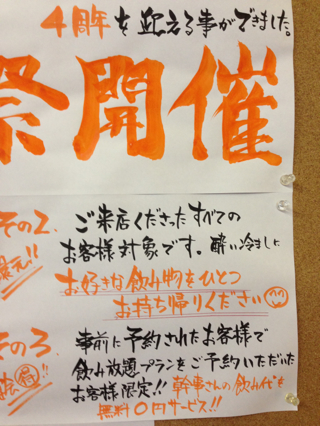 4周年を迎える事ができました。
祭開催
その2.
ご来店くださったすべての
お客様対象です。酔い冷ましに
還元!!
お好きな飲み物をひとつ
お持ち帰りください
その3.
事前に予約されたお客様で
飲み放題プランをご予約いただいた
お客様限定!! 幹事さんの飲み代を
無料0円サービス!!